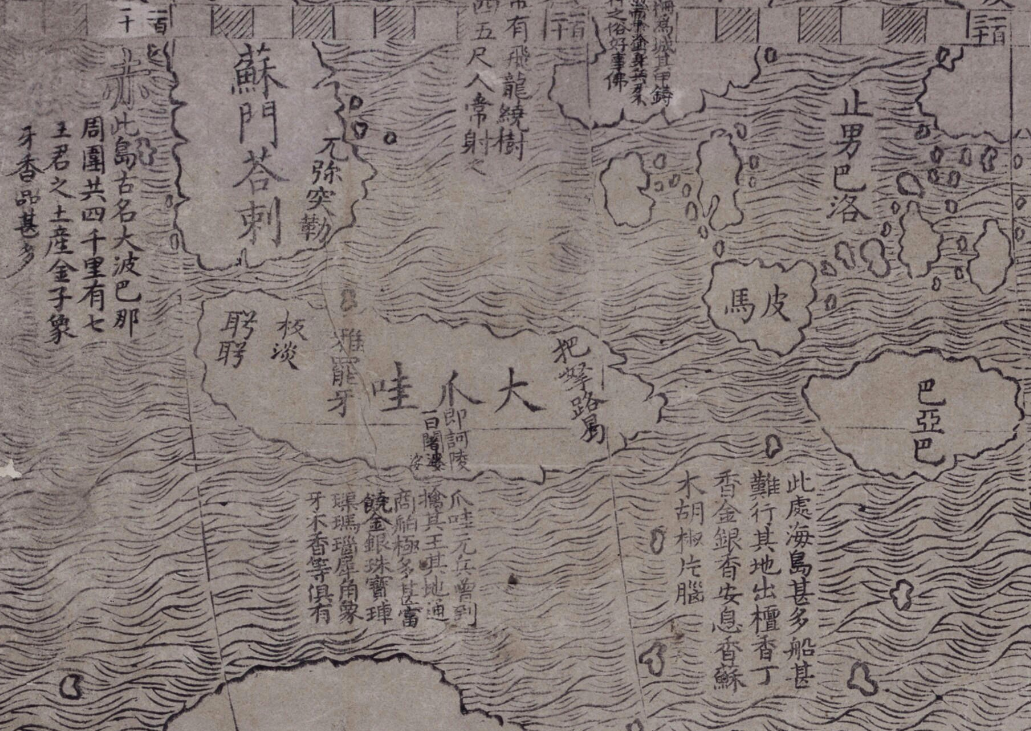 二十
一百
二十
一百
三十
一百
赤
蘇門荅剌
兀弥突勒
此島古名大波巴那
周圍共四千里有七
王君之土産金子象
牙香品甚多
有飛龍繞樹
四五尺人常射之
之俗好事佛
止男巴洛
馬皮
巴亞巴
大爪哇
即訶陵
板淡
爪哇元兵曽到
擒其王其地通
商舶極多甚富
饒金銀珠寶琸
璖瑪瑙犀角象
牙木香等俱有
此處海島甚多船甚
難行其地出檀香丁
香金銀香安息香蘇
木胡椒片腦